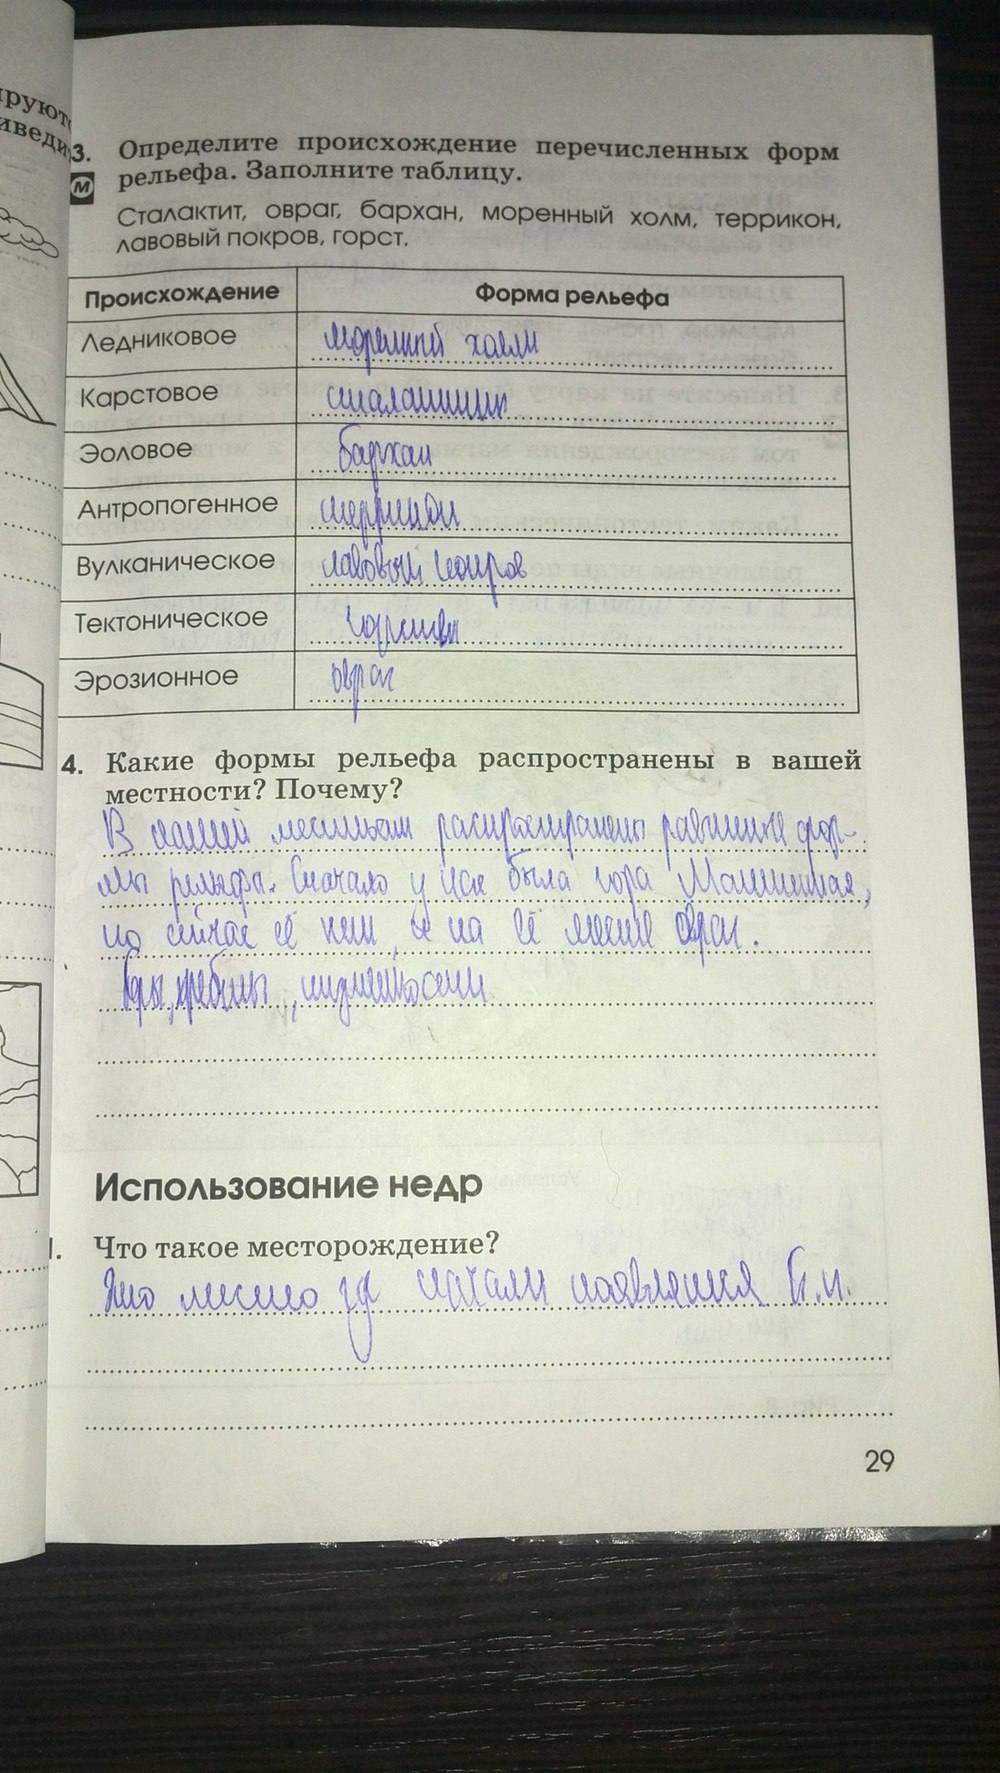 ируют
иведи
3. Определите происхождение перечисленных форм
М рельефа. Заполните таблицу.
Сталактит, овраг, бархан, моренный холм, террикон,
лавовый покров, горст.
Происхождение Форма рельефа
Ледниковое моренный холм
Карстовое сталактит
Эоловое бархан
Антропогенное террикон
Вулканическое лавовый покров
Тектоническое
Эрозионное овраг
4. Какие формы рельефа распространены в вашей
местности? Почему?
В нашей распространены равнинные фор-
мы рельефа. Сначало у нас была гора
но сейчас её нет, и на её месте овраг.
низменности
Использование недр
1. Что такое месторождение?
Это место где начали п.и.
29